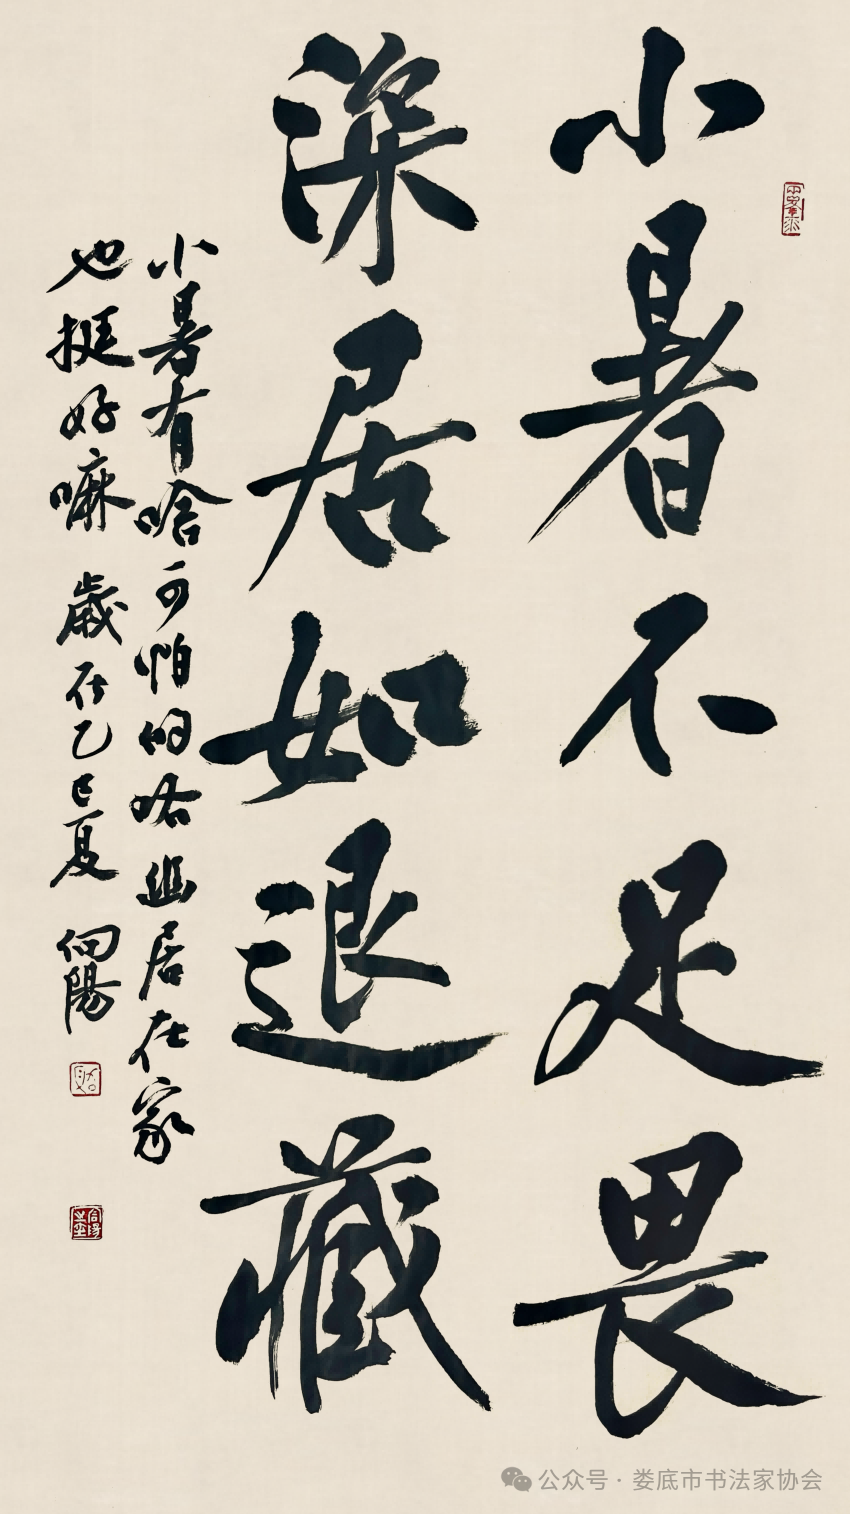 小暑不足畏
深居如退藏
小暑有啥可怕的咯幽居在家
也挺好嘛 歲在乙巳夏 向陽
公众号·娄底市书法家协会